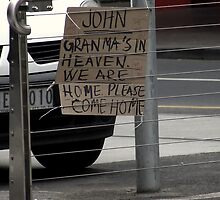 JOHN
GRANMA'S IN
HEAVEN.
WE ARE
HOME. PLEASE
COME HOME
E 010